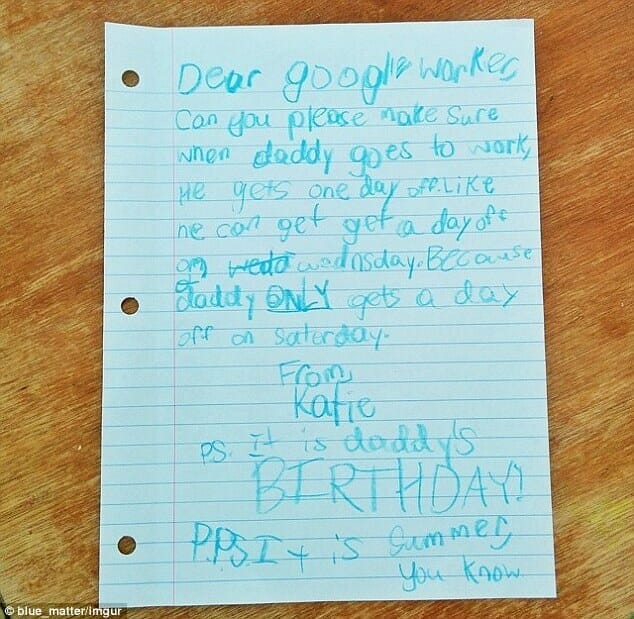 Dear google worker,
Can you please make sure
when daddy goes to work,
He gets one day off. Like
he can get get a day off
on wedd wednsday. Because
daddy ONLY gets a day
off on saterday.
From,
Katie
P.S. It is daddy's
BIRTHDAY!
P.P.S It is summer,
you know
© blue_matter/imgur